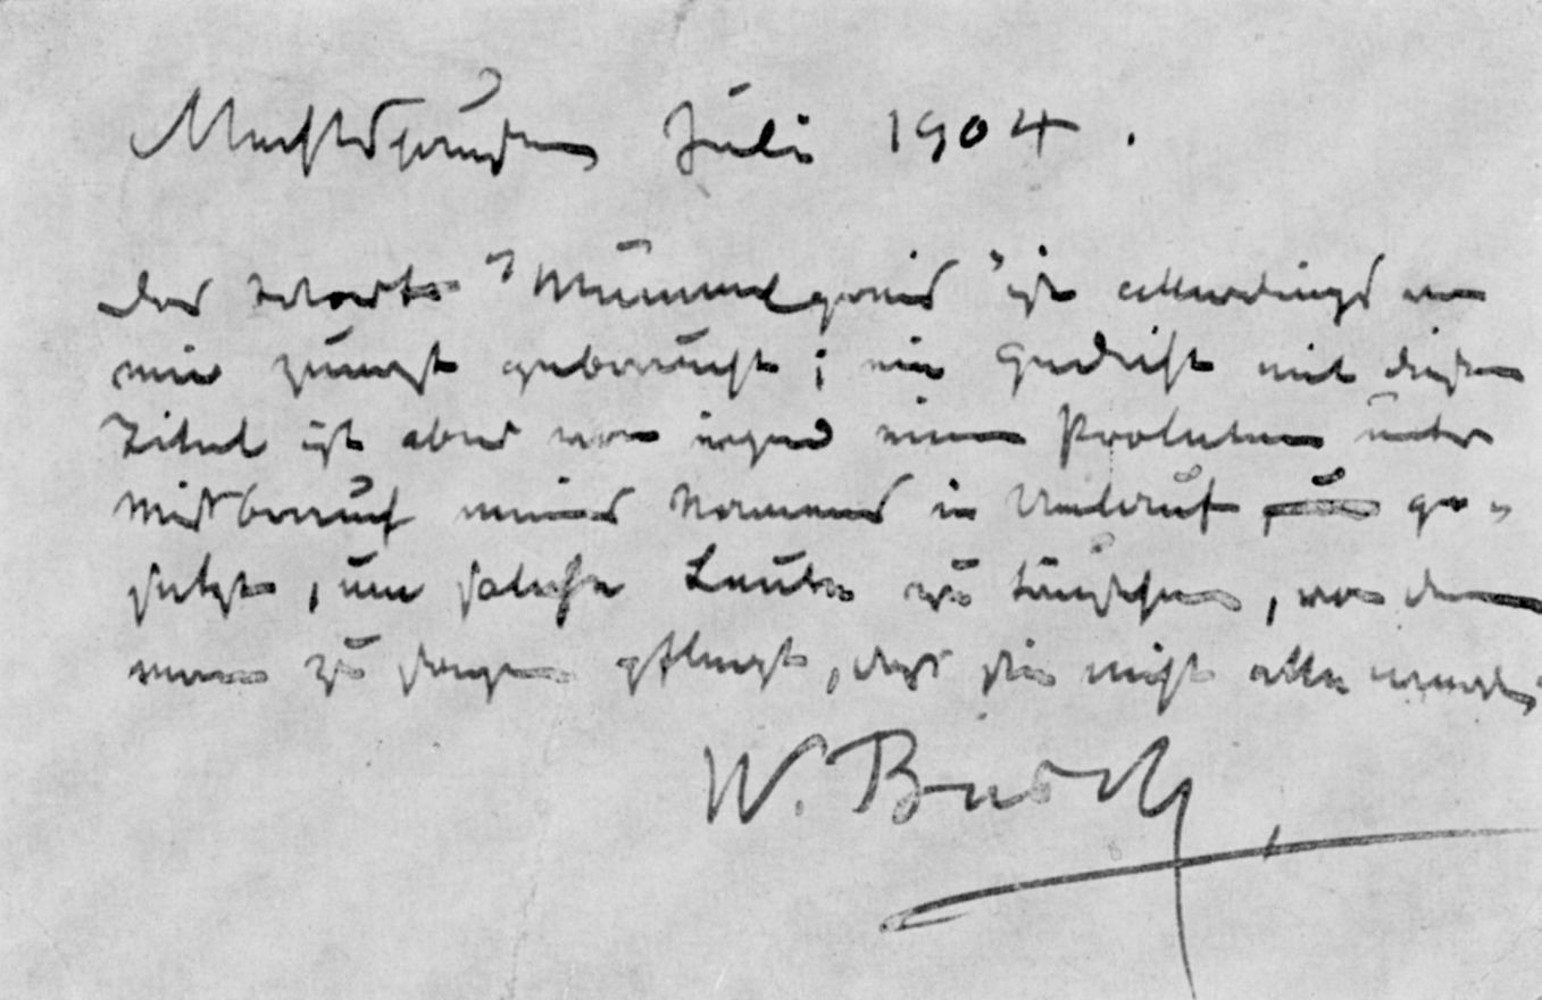 Mechtshausen Juli 1904.
Das Wort "Mummelgreis" ist allerdings von
mir zuerst gebraucht; ein Gedicht mit diesem
Titel ist aber von irgend einem Proleten unter
Mißbrauch meines Namens in Umlauf ge-
setzt, um solche Leute zu täuschen, von denen
man zu sagen pflegt, daß sie nicht alle werden.
W. Busch